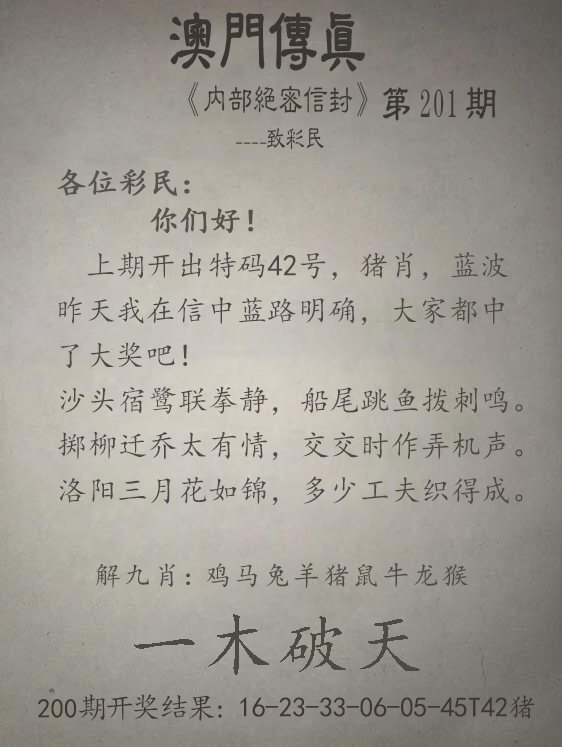 澳門傳眞
《内部絕密信封》第201期
----致彩民
各位彩民:
你们好!
上期开出特码42号，猪肖，蓝波
昨天我在信中蓝路明确，大家都中
了大奖吧!
沙头宿鹭联拳静，船尾跳鱼拨刺鸣。
掷柳迁乔太有情，交交时作弄机声。
洛阳三月花如锦，多少工夫织得成。
解九肖: 鸡马兔羊猪鼠牛龙猴
一木破天
200期开奖结果: 16-23-33-06-05-45T42猪